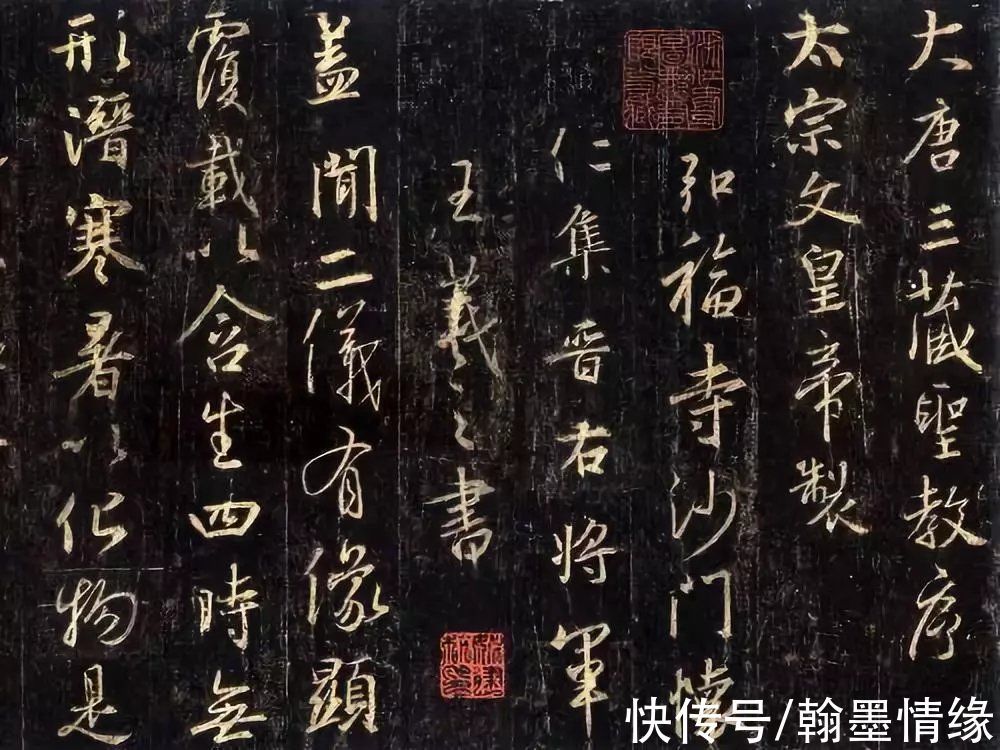 大唐三藏聖教序
太宗文皇帝製
弘福寺沙門懷
仁集晉右將軍
王羲之書
蓋聞二儀有像顯
覆載以含生四時無
形潛寒暑以化物是
快传号/翰墨情缘